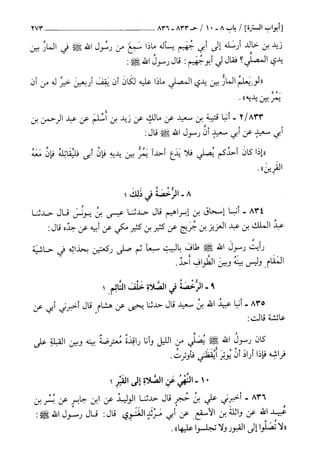 [أبواب السترة] / باب ٨ - ١٠ / حـ ٨٣٣ - ٨٣٦ ٢٧٣
زيد بن خالد أرسله إلى أبي جُهيم يسأله ماذا سَمِعَ من رسول الله ﷺ في المارّ بين
يدي المصلّي؟ فقال لي أبو جُهيم: قال رسول الله ﷺ:
«لو يَعلمُ المارُّ بين يدي المصلي ماذا عليه لكانَ أن يَقِفَ أربعينَ خيرٌ له من أن
يَمُرَّ بين يديه».
٢/٨٣٣ - أنبا قتيبة بن سعيد عن مالكٍ عن زيد بن أسْلَمَ عن عبد الرحمن بن
أبي سعيدٍ عن أبي سعيدٍ أنّ رسولَ الله ﷺ قال:
«إذا كانَ أحدُكم يُصلي فلا يَدَعْ أحداً يَمُرُّ بين يديهِ فإنْ أبى فليُقاتِلْهُ فإنَّ مَعَهُ
القَرينَ».
٨ - الرُّخْصَةُ في ذلِكَ ١
٨٣٤ - أنبـا إسحاق بن إبراهيم قال حدثنـا عيسى بنُ يـونُسَ قـال حـدثنـا
عبدُ الملك بن عبد العزيز بن جُريج عن كثير بن كثير مكي عن أبيه عن جدّه قال:
رأيتُ رسولَ الله ﷺ طافَ بالبيتِ سبعاً ثم صلى ركعتين بحذائِه في حـاشيَةِ
المقام وليس بينَهُ وبينَ الطّوافِ أحدٌ.
٩ - الرخصَةُ في الصلاةِ خَلْفَ النّائمِ ١
٨٣٥ - أنبا عبيدُ الله بنُ سعيد قال حدثنا يحيى عن هشامٍ قال أخبرني أبي عن
عائشة قالت:
كان رسولُ الله ﷺ يُصَلّي من الليل وأنا راقدةٌ مُعترضةٌ بينه وبين القبلةِ على
فراشِه فإذا أرادَ أنْ يُوتِرَ أيْقَظَني فأوترتُ.
١٠ - النَّهْيُ عَنِ الصَّلاةِ إلى القَبْرِ ١
٨٣٦ - أخبرني عليُّ بنُ حُجرٍ قال حدثنـا الوليـدُ عن ابن جابـرٍ عن بُسْرِ بن
عُبيـدِ الله عن واثلةَ بن الأسقع عن أبي مَـرْثَدٍ الغَنَـوي قال: قـال رسـول الله ﷺ:
«لا تُصَلّوا إلى القبور ولا تجلسوا عليها».